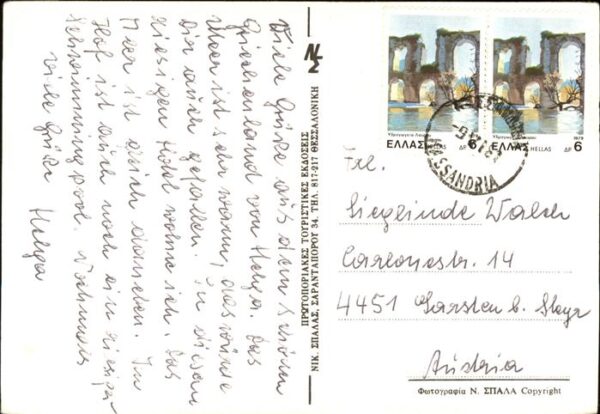 Viele Grüße aus dem schönen
Griechenland von Helga. Das
Meer ist sehr warm, das würde
Dir auch gefallen. In diesem
riesigen Hotel wohne ich. Das
Meer ist gleich daneben. Im
Hof ist auch noch ein riesen
Schwimmingpool. Nochmals
viele Grüße
Helga
ΠΡΩΤΟΠΟΡΙΑΚΕΣ ΤΟΥΡΙΣΤΙΚΕΣ ΕΚΔΟΣΕΙΣ
ΝΙΚ. ΣΠΑΛΑΣ, ΣΑΡΑΝΤΑΠΟΡΟΥ 34, ΤΗΛ. 817-217 ΘΕΣΣΑΛΟΝΙΚΗ
ΕΛΛΑΣ HELLAS ΔΡ 6
ΕΛΛΑΣ HELLAS ΔΡ 6
1979
Frl.
Sieglinde Walch
Carlonestr. 14
4451 Garsten b. Steyr
Austria
Φωτογραφία Ν. ΣΠΑΛΑ Copyright